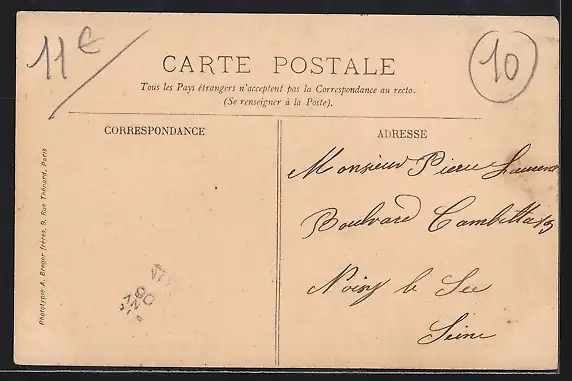 11€
10
CARTE POSTALE
Tous les Pays étrangers n'acceptent pas la Correspondance au recto.
(Se renseigner à la Poste).
CORRESPONDANCE
ADRESSE
Monsieur Pierre Laurent
Boulvard Gambetta 13
Noisy le Sec
Seine
Phototypie A. Breger frères, 9, Rue Thénard, Paris